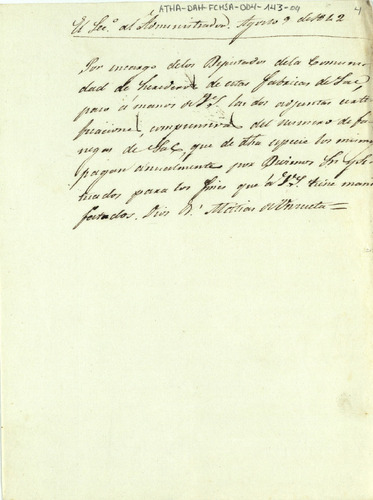 ATHA-DAH-FCMSA-004-143-04
4
El Sec.º al Administrador. Agosto 9 de 1842
Por encargo de los Diputados de la Comuni
dad de herederos de estas fabricas de Sal,
paso á manos de V.S. las dos adjuntas
comprensivas del numero de fa
negas de Sal, que de dha especie los mismos
pagan anualmente por Diezmos
para los fines que á V.S. tiene mani
festados. Dios &ª Matias de